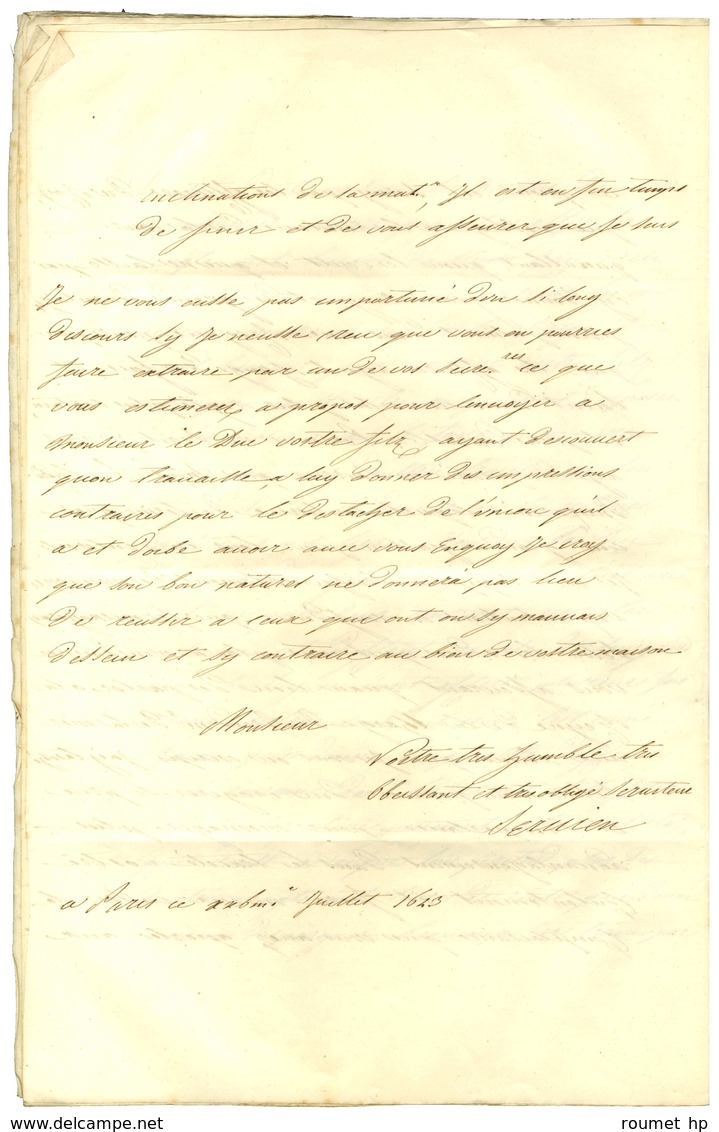 inclinations de sa maté, Il est enfin temps
de finir et de vous asseurer que Je suis
Je ne vous eusse pas importuné d'un si long
discours sy Je neusse creu que vous en pourries
faire extraire par un de vos Secre.res ce que
vous estimeres a propos pour l'envoyer a
Monsieur le Duc vostre filz, ayant descouvert
quon travaille a luy donner des impressions
contraires pour le destacher de l'union quil
a et doibt avoir avec vous Enquoy Je croy
que son bon naturel ne donnera pas lieu
de reussir a ceux que ont un sy mauvais
dessein et sy contraire au bien de vostre maison
Monsieur
Vostre tres humble tres
Obeissant et tres obligé Serviteur
Servien
a Paris ce Juillet 1643
roumet hp